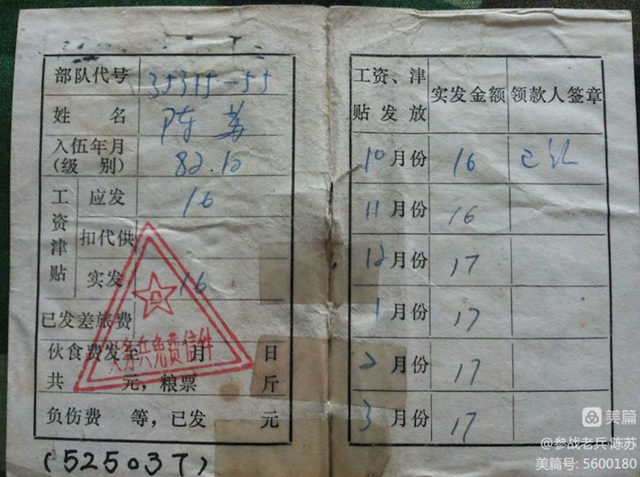 部队代号 35315-55
姓名 陈苏
入伍年月(级别) 82.10
工资津贴
应发 16
扣代供
实发 16
已发差旅费
伙食费发至 月 日
共 元,粮票 斤
负伤费 等,已发 元
(525037)
义务兵免费信件
工资、津贴发放 实发金额 领款人签章
10月份 16 已领
11月份 16
12月份 17
1月份 17
2月份 17
3月份 17
美篇
@参战老兵·陈苏
美篇号: 5600180